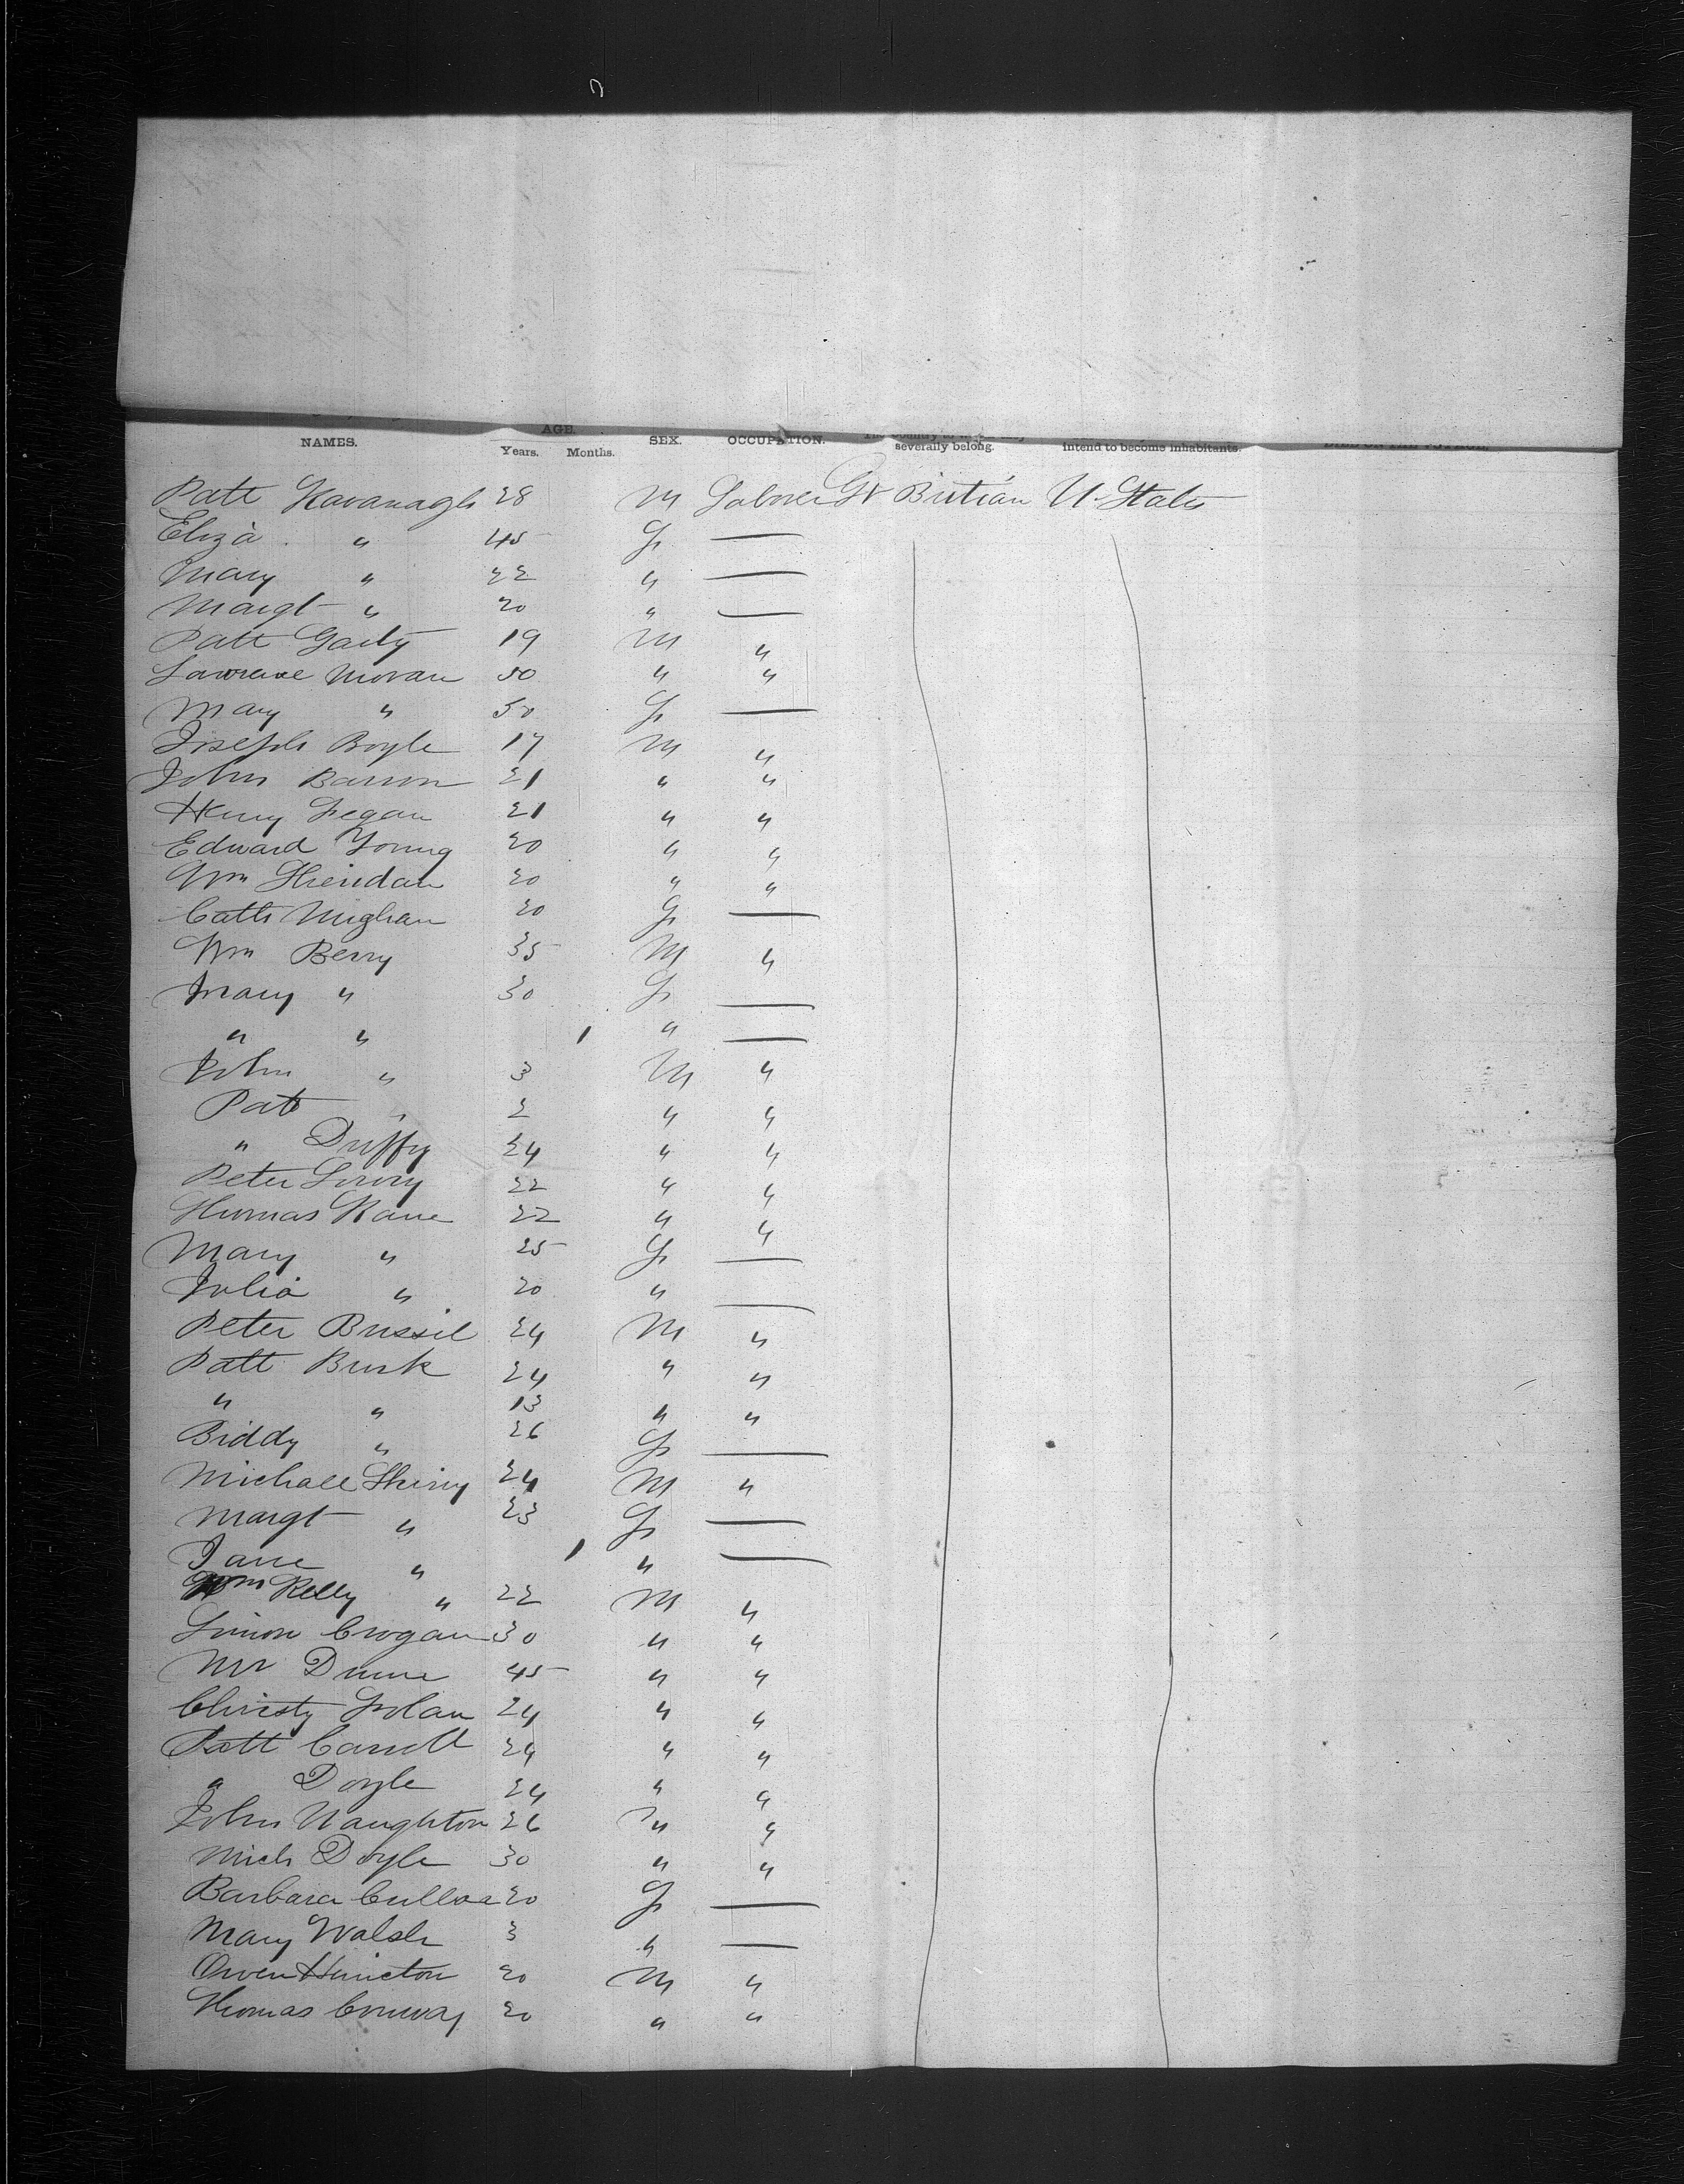 NAMES. AGE. Years. Months. SEX. OCCUPATION. severally belong. intend to become inhabitants.
Patt Kavanagh 28 M Laborer Gt Britian U States
Eliza " 45 F —
Mary " 22 " —
Margt " 20 " —
Patt Garty 19 M "
Lawrence Moran 50 " "
Mary " 50 F —
Joseph Boyle 17 M "
John Barron 21 " "
Henry Fegan 21 " "
Edward Young 20 " "
Wm Sheridan 20 " "
Cath Mighan 20 F —
Wm Berry 35 M "
Mary " 30 F —
" " 1 " —
John " 3 M "
Pat " 2 " "
" Duffy 24 " "
Peter Lowry 22 " "
Thomas Kane 22 " "
Mary " 25 F —
Julia " 20 " —
Peter Bussil 24 M "
Patt Burk 24 " "
" " 13 " "
Biddy " 26 F —
Michall 24 M "
Margt " 23 F —
Jane " 1 " —
Wm Kelly " 22 M "
Simon Crogan 30 " "
Mr Dunne 45 " "
Christy Folan 24 " "
Patt Carroll 24 " "
" Doyle 24 " "
John Naughton 26 " "
Mich Doyle 30 " "
Barbara 20 F —
Mary Walsh 3 " —
Owen 20 M "
Thomas Conway 20 " "